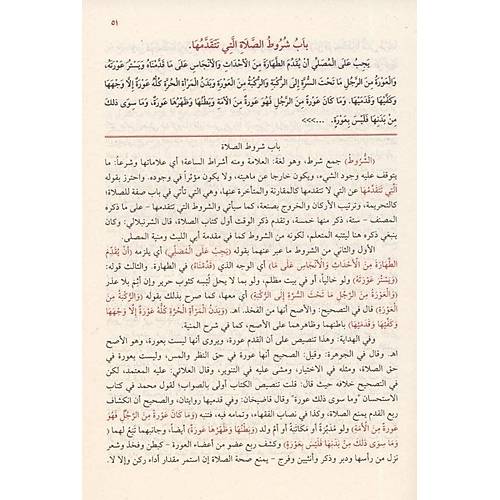 ٥١
بَابُ شُرُوطُ الصَّلَاةِ الَّتِي تَتَقَدَّمُهَا.
يَجِبُ عَلَى المُصَلِّي أَنْ يُقَدِّمَ الطَّهَارَةَ مِنَ الأَحْدَاثِ وَالأَنْجَاسِ عَلَى مَا قَدَّمْنَاهُ وَيَسْتُرَ عَوْرَتَهُ،
وَالعَوْرَةُ مِنَ الرَّجُلِ مَا تَحْتَ السُّرَّةِ إِلَى الرُّكْبَةِ وَالرُّكْبَةُ مِنَ العَوْرَةِ وَبَدَنُ المَرْأَةِ الحُرَّةِ كُلُّهُ عَوْرَةٌ إِلَّا وَجْهَهَا
وَكَفَّيْهَا وَقَدَمَيْهَا. وَمَا كَانَ عَوْرَةً مِنَ الرَّجُلِ فَهُوَ عَوْرَةٌ مِنَ الأَمَةِ وَبَطْنُهَا وَظَهْرُهَا عَوْرَةٌ، وَمَا سِوَى ذلِكَ
مِنْ بَدَنِهَا فَلَيْسَ بِعَوْرَةٍ. ...>>>
باب شروط الصلاة
(الشُّرُوطُ) جمع شرط، وهو لغة: العلامة ومنه أشراط الساعة؛ أي علاماتها وشرعاً: ما
يتوقف عليه وجود الشيء، ويكون خارجا عن ماهيته، ولا يكون مؤثراً في وجوده. واحترز بقوله
الَّتِي تَتَقَدَّمُهَا عن التي لا تتقدمها كالمقارنة والمتأخرة عنها، وهي التي تأتي في باب صفة للصلاة؛
كالتحريمة، وترتيب الأركان والخروج بصنعة، كما سيأتي والشروط التي تتقدمها - على ما ذكره
المصنف - ستة، ذكر منها خمسة، وتقدم ذكر الوقت أول كتاب الصلاة، قال الشرنبلالي: وكان
ينبغي ذكره هنا ليتنبه المتعلم، لكونه من الشروط كما في مقدمة أبي الليث ومنية المصلى.
الأول والثاني من الشروط ما عبر عنهما بقوله (يَجِبُ عَلَى المُصَلِّي) أي يلزمه (أَنْ يُقَدِّمَ
الطَّهَارَةَ مِنَ الأَحْدَاثِ وَالأَنْجَاسِ عَلَى مَا) أي الوجه الذي (قَدَّمْنَاهُ) في الطهارة. والثالث قوله:
(وَيَسْتُرَ عَوْرَتَهُ) ولو خالياً، أو في بيت مظلم، ولو بما لا يحل لُبسه كثوب حرير وإن أثم بلا عذر
(وَالعَوْرَةُ مِنَ الرَّجُلِ مَا تَحْتَ السُّرَّةِ إِلَى الرُّكْبَةِ) أي معها، كما صرح بذلك بقوله (وَالرُّكْبَةُ مِنَ
العَوْرَةِ) قال في التصحيح: والأصح أنها من الفخذ. اهـ (وَبَدَنُ المَرْأَةِ الحُرَّةِ كُلُّهُ عَوْرَةٌ إِلَّا وَجْهَهَا
وَكَفَّيْهَا وَقَدَمَيْهَا) باطنهما وظاهرهما على الأصح، كما في شرح المنية.
وفي الهداية: وهذا تنصيص على أن القدم عورة، ويروى أنها ليست بعورة، وهو الأصح
اهـ. وقال في الجوهرة: وقيل: الصحيح أنها عورة في حق النظر والمس، وليست بعورة في
حق الصلاة، ومثله في الاختيار، ومشى عليه في التنوير، وقال العلائي: عليه المعتمد، لكن
في التصحيح خلافه حيث قال: قلت تنصيص الكتاب أولى بالصواب؛ لقول محمد في كتاب
الاستحسان "وما سوى ذلك عورة" وقال قاضيخان: وفي قدميها روايتان، والصحيح أن انكشاف
ربع القدم يمنع الصلاة، وكذا في نصاب الفقهاء، وتمامه فيه، فتنبه (وَمَا كَانَ عَوْرَةً مِنَ الرَّجُلِ فَهُوَ
عَوْرَةٌ مِنَ الأَمَةِ) ولو مُدَبَّرَةً أو مكاتبة أو أم ولد (وَبَطْنُهَا وَظَهْرُهَا عَوْرَةٌ) أيضاً، وجانبهما تبع لهما (
وَمَا سِوَى ذلِكَ مِنْ بَدَنِهَا فَلَيْسَ بِعَوْرَةٍ) وكشف ربع عضو من أعضاء العورة - كبطن وفخذ وشعر
نزل من رأسها ودبر وذكر وأنثيين وفرج - يمنع صحة الصلاة إن استمر مقدار أداء ركن وإلا لا.